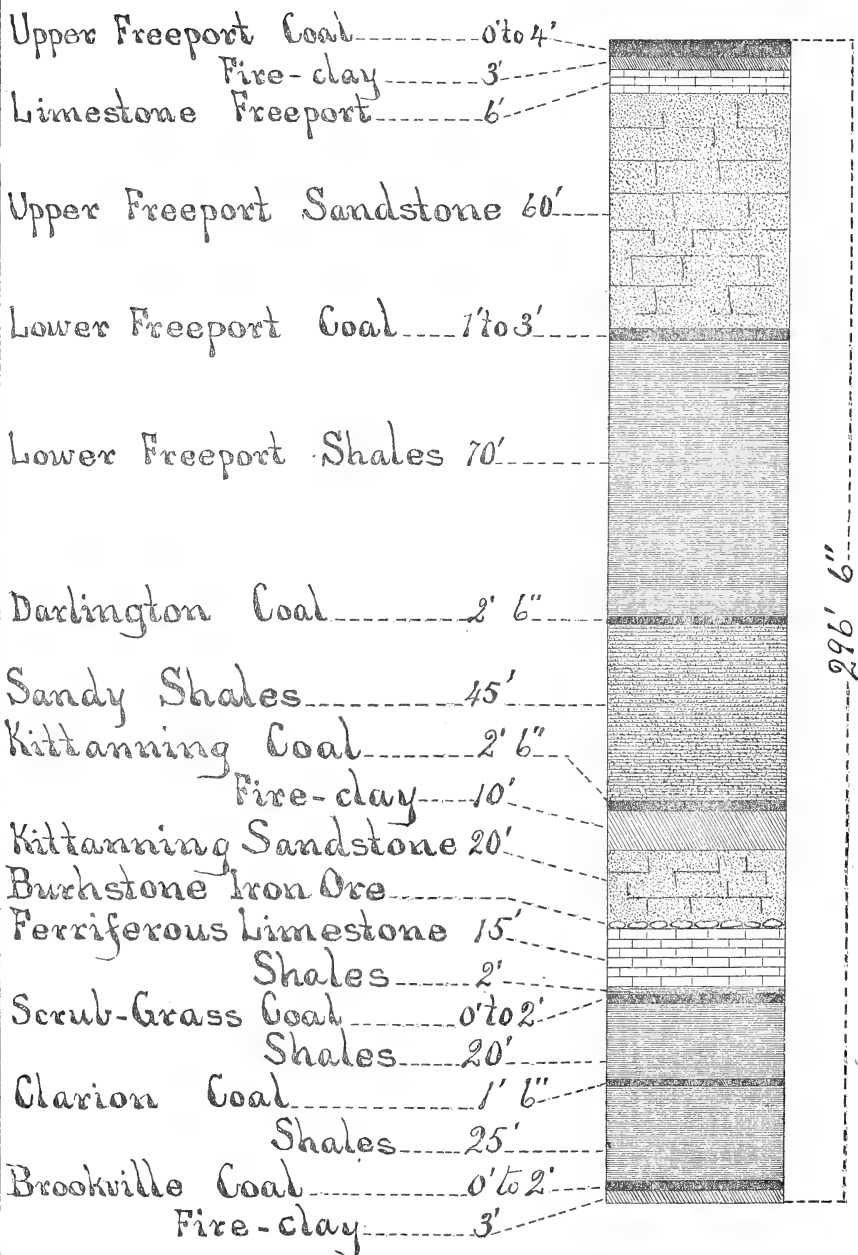 Upper Freeport Coal 0' to 4'
Fire-clay 3'
Limestone Freeport 6'
Upper Freeport Sandstone 60'
Lower Freeport Coal 1' to 3'
Lower Freeport Shales 70'
Darlington Coal 2' 6"
Sandy Shales 45'
Kittanning Coal 2' 6"
Fire-clay 10'
Kittanning Sandstone 20'
Buhrstone Iron Ore
Ferriferous Limestone 15'
Shales 2'
Scrub-Grass Coal 0' to 2'
Shales 20'
Clarion Coal 1' 6"
Shales 25'
Brookville Coal 0' to 2'
Fire-clay 3'
296' 6"